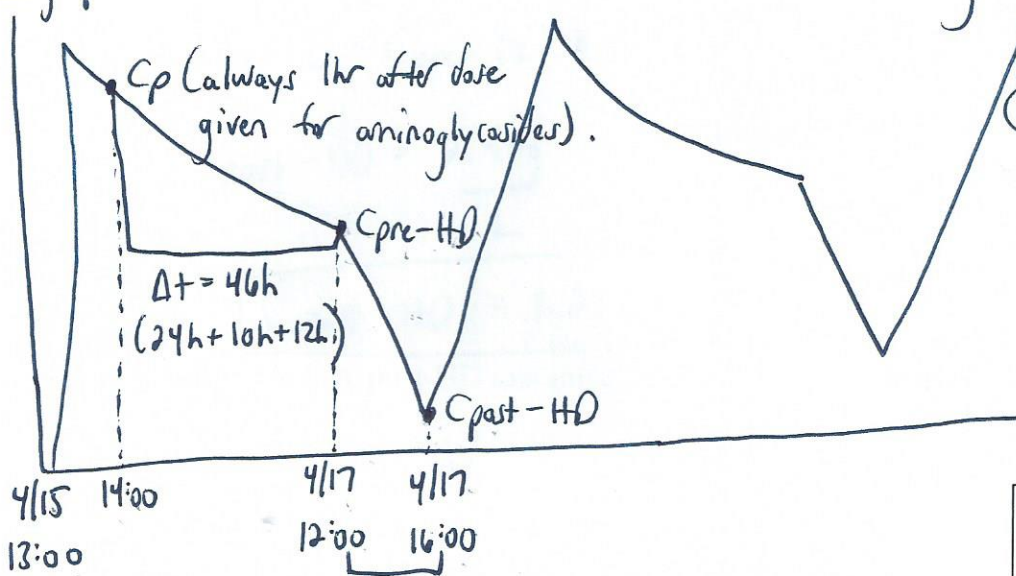 Cp (always 1hr after dose
given for aminoglycosides).
Cpre-HD
Δt = 46h
(24h+10h+12h)
Cpost-HD
4/15 14:00 4/17 4/17
13:00 12:00 16:00